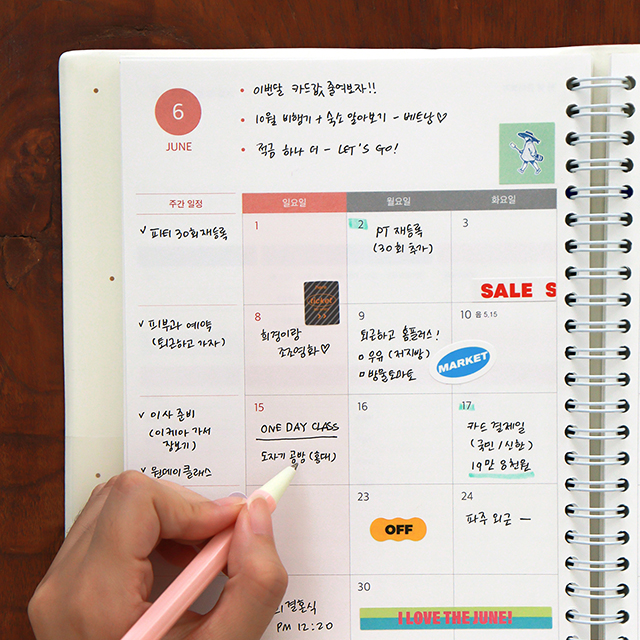 6
JUNE
• 이번달 카드값 줄여보자!!
• 10월 비행기 + 숙소 알아보기 - 베트남♡
• 적금 하나 더 - LET'S GO!
주간 일정
일요일
월요일
화요일
✓ 피티 30회 재등록
1
2
PT 재등록
(30회 추가)
3
ticket
SALE S
✓ 피부과 예약
(퇴근하고 가자)
8
희경이랑
조조영화♡
9
퇴근하고 홈플러스!
o 우유 (저지방)
ㅁ 방울토마토
10 음 5.15
MARKET
✓ 이사 준비
(이케아 가서
장보기)
✓ 원데이 클래스
15
ONE DAY CLASS
도자기 공방 (홍대)
16
17
카드 결제일
(국민 / 신한)
19만 8천원
23
OFF
24
파주 외근 -
결혼식
PM 12:20
30
I LOVE THE JUNE!